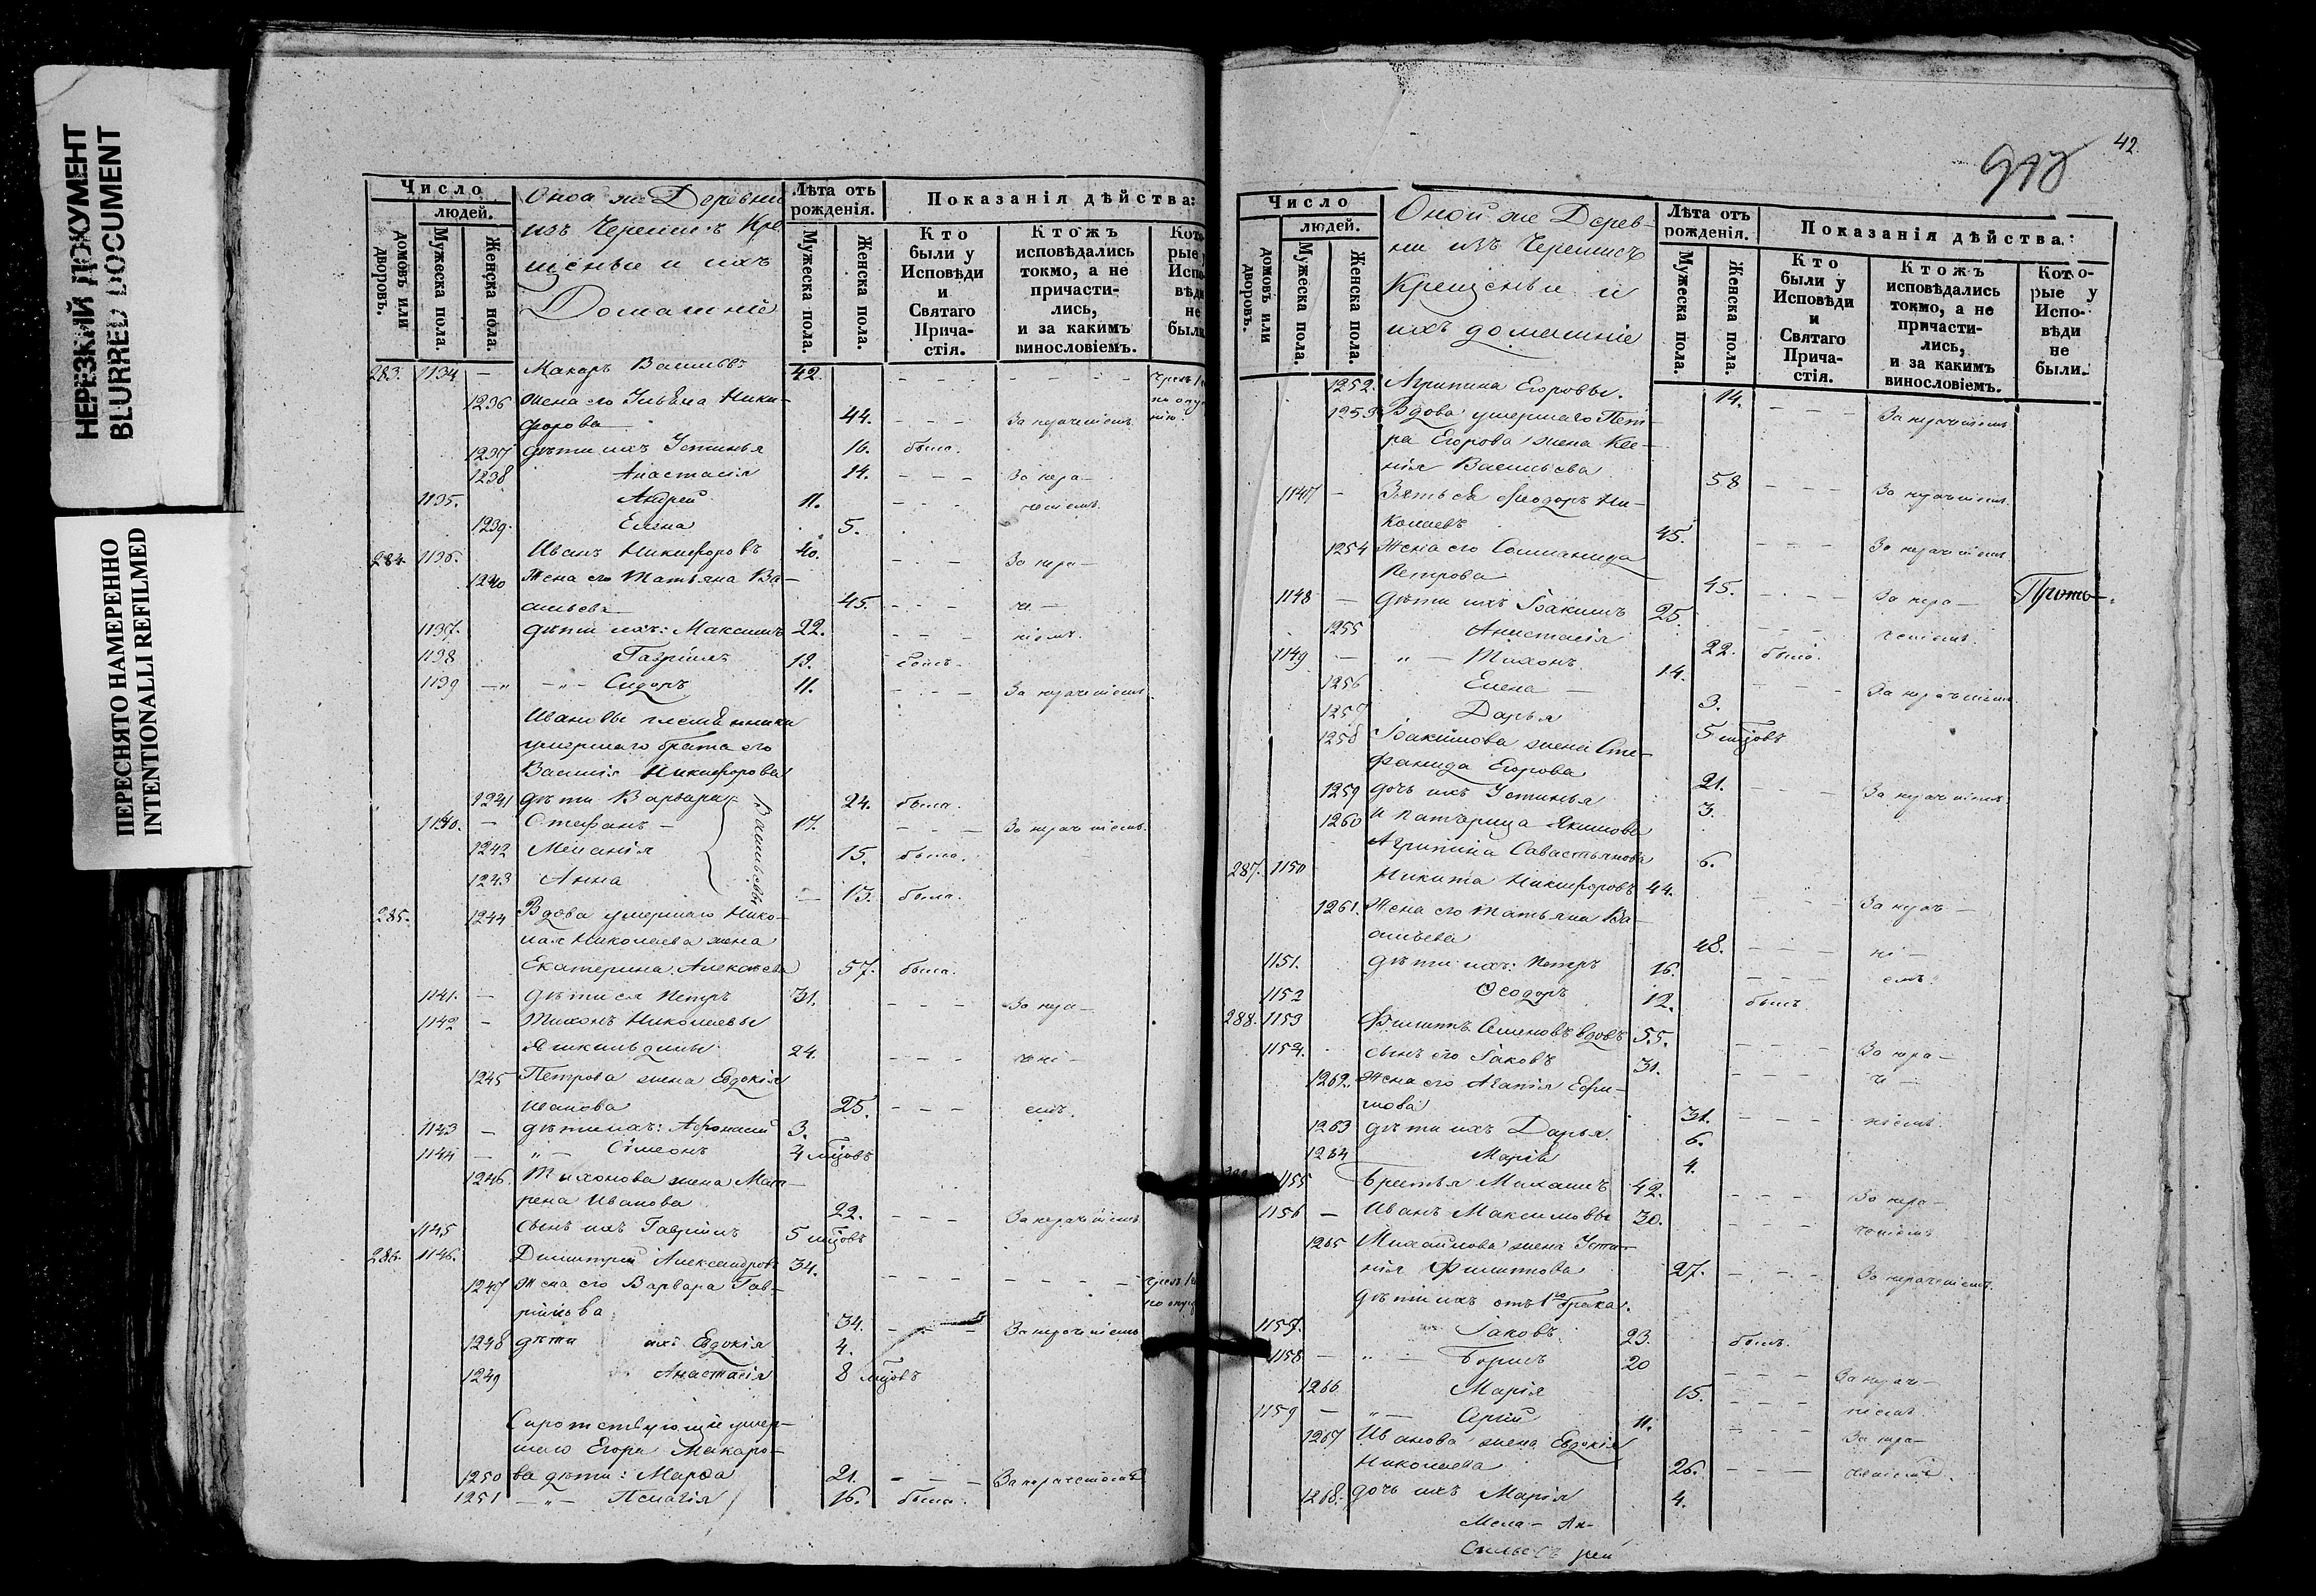 НЕРЕЗКИЙ ДОКУМЕНТ
BLURRED DOCUMENT
ПЕРЕСНЯТО НАМЕРЕННО
INTENTIONALLI REFILMED
Число
людей.
домовъ или дворовъ.
Мужеска пола.
Женска пола.
Оноа же Деревни
изъ Черемисъ Кре
щеные и ихъ
Домашніе
Лѣта отъ рожденія.
Мужеска пола.
Женска пола.
Показанія дѣйства:
Кто были у Исповѣди и Святаго Прича- стія.
Ктожъ исповѣдались токмо, а не причасти- лись, и за какимъ винословіемъ.
283. 1134 — Макаръ Васильевъ 42.
1236 жена его Ульяна Ники-
форова 44. За нераченіемъ
1237 дѣти ихъ Устинья 16. была.
1238 Анастасія 14. За нера-
1135. Андрей 11. ченіемъ
1239. Елена 5.
284 1136. Иванъ Никифоровъ 40. За нера-
1240 Жена его Татьяна Ва-
сильева 45. че-
1137. дѣти ихъ: Максимъ 22. ніемъ
1138 Гавріилъ 19. былъ.
1139 Сидоръ 11. За нераченіемъ
Ивановы племѣнники
умершаго брата его
Василія Никифорова
1241 дѣти Варвара 24. была.
1140. — Стефанъ — Васильевы 17. За нераченіемъ.
1242 Меланія 15. была.
1243 Анна 13. была.
285. 1244 Вдова умершаго Нико-
лая Николаева жена
Екатерина Алексѣева 57. была.
1141. — дѣти ея Петръ 31. За нера-
1142 — Тихонъ Николаевы
24. чені-
1245 Петрова жена Евдокія
Иванова 25. емъ.
1143 — дѣти ихъ: Афонасій 3.
1144 — Сімеонъ 4 мцовъ
1246. Тихонова жена Мат-
рена Иванова 22. За нераченіемъ
1145 сынъ ихъ Гавріилъ 5 мцовъ
286. 1146. Димитрій Александровъ 34.
1247 Жена его Варвара Гав-
рійлова 34. За нераченіемъ
1248 дѣти ихъ Евдокія 4.
1249 Анастасія 8 мцовъ
Сиротствующіе умер-
шаго Егора Макаро-
1250 ва дѣти: Марѳа 21. За нераченіемъ
1251 Пелагія 16. была.
42.
Число
людей.
домовъ или дворовъ.
Мужеска пола.
Женска пола.
Оной же Дерев-
ни изъ Черемисъ
Крещеные и
ихъ домашніе
Лѣта отъ рожденія.
Мужеска пола.
Женска пола.
Показанія дѣйства:
Кто были у Исповѣди и Святаго Прича- стія.
Ктожъ исповѣдались токмо, а не причасти- лись, и за какимъ винословіемъ.
Кото- рые у Испо- вѣди не были.
1252. Агрипина Егоровы. 14. За нераченіемъ
1253 Вдова умершаго Пет-
ра Егорова жена Ксе-
нія Васильева 58 За нераченіемъ
1147 — Зять ея Ѳеодоръ Ни-
колаевъ 45. За нераченіемъ
1254 Жена его Соломанида
Петрова 45. За нера-
1148 — дѣти ихъ Іоакимъ 25. ченіемъ
1255 Анастасія 22. была.
1149 — Тихонъ 14. За нераченіемъ
1256 Елена 3.
1257 Дарья 5 мцовъ
1258 Іоакимова жена Сте-
фанида Егорова 21. За нераченіемъ
1259 дочь ихъ Устинья 3.
1260 Якимова
Агрипина Савастьянова 6.
287. 1150 Никита Никифоровъ 44. За нерач-
1261. Жена его Татьяна Ва-
сильева 48. ні-
1151. дѣти ихъ: Петръ 16. емъ
1152 Ѳеодоръ 12. былъ
288. 1153 Филиппъ Семеновъ вдовъ 55. За нера-
1154. сынъ его Іаковъ 31. че-
1262. Жена его Агапія Ефи-
мова 31. ніемъ.
1263 дѣти ихъ Дарья 6.
1264 Марія 4.
1155 Братья Михаилъ 42. За нера-
1156 — Иванъ Максимовы 30. ченіемъ
1265 Михайлова жена Усти-
нія Филипова 27. За нераченіемъ
дѣти ихъ отъ 1го брака.
1157. Іаковъ 23. былъ.
1158 — Борисъ 20 За нерач-
1266 Марія 15. ніемъ
1159 — Сергій 11. За нера-
1267 Иванова жена Евдокія
Николаева 26. ченіемъ.
1268. дочь ихъ Марія 4.